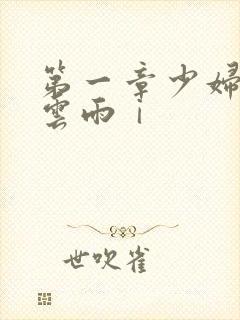 第一章少婦
雲雨｜
世吹雀